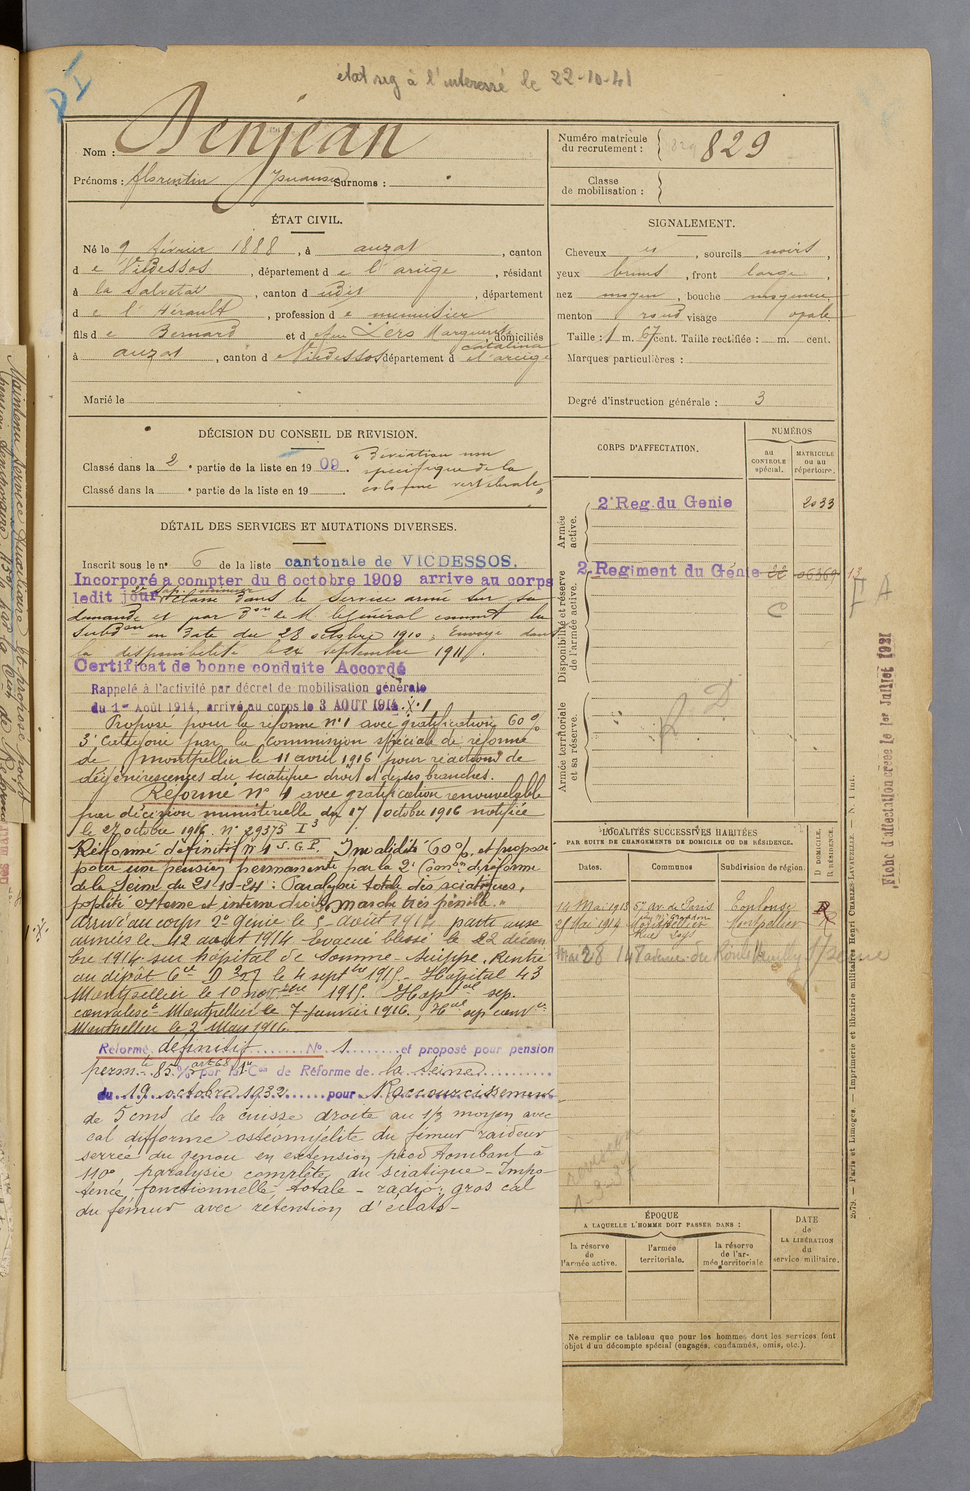 état sig à l'intéressé le 22-10-41
Nom : Denjean
Prénoms : Florentin Surnoms :
Numéro matricule du recrutement : 829
Classe de mobilisation :
ÉTAT CIVIL.
Né le 9 février 1888, à auzat, canton
de Vicdessos, département de l'ariège, résidant
à la Salvetat, canton d udit, département
de l'Hérault, profession de menuisier
fils de Bernard et de feu L'ers Marguerite Catalina, domiciliés
à auzat, canton de Vicdessos département de l'ariège
Marié le
SIGNALEMENT.
Cheveux et, sourcils noirs,
yeux bruns, front large,
nez moyen, bouche moyenne
menton rond visage ovale
Taille : 1 m. 67 cent. Taille rectifiée : m. cent.
Marques particulières :
Degré d'instruction générale : 3
DÉCISION DU CONSEIL DE REVISION.
Classé dans la 2e partie de la liste en 1909. "Déviation non
spécifique de la
colonne vertébrale"
Classé dans la e partie de la liste en 19
CORPS D'AFFECTATION.
NUMÉROS
au CONTROLE spécial.
MATRICULE ou au répertoire.
Armée active.
2e Reg. du Genie 2033
Disponibilité et réserve de l'armée active.
2e Regiment du Génie 22 06369
C
Armée territoriale et sa réserve.
R. D
DÉTAIL DES SERVICES ET MUTATIONS DIVERSES.
Inscrit sous le no 6 de la liste cantonale de VICDESSOS.
Incorporé a compter du 6 octobre 1909 arrive au corps
ledit jour Classé dans le service armé sur sa
demande et par Don de M. le Général commt la
Subdon en date du 28 octobre 1910. Envoyé dans
la disponibilité le 24 septembre 1911.
Certificat de bonne conduite Accordé
Rappelé à l'activité par décret de mobilisation générale
du 1er Août 1914, arrivé au corps le 3 AOUT 1914.
Proposé pour la réforme No 1 avec gratification 60 %
3e Catégorie par la Commission spéciale de réforme
de Montpellier le 11 avril 1916 pour réactions de
dégénérescences du sciatique droit et de ses branches.
Réformé No 1 avec gratification renouvelable
par décision ministérielle du 17 octobre 1916 notifiée
le 27 octobre 1916. No 29375 I3
Réforme définitif No 1 S.G.P. Invalidité 60% et proposé
pour une pension permanente par la 2e Comon de réforme
de la Seine du 21-10-24 : Paralysie totale des sciatiques,
poplité externe et interne droits, marche très pénible."
Arrivé au corps 2e Génie le 3 août 1914 parti aux
armées le 12 août 1914. Evacué blessé le 22 décem
bre 1914 sur hôpital de Somme-Suippe. Rentré
au dépôt le 4 septbre 1915 - Hôpital 43
Montpellier le 10 novembre 1915. Hoptal sep.
convalesce Montpellier le 7 janvier 1916.
Montpellier le 2 Mars 1916.
Réformé définitif No 1 et proposé pour pension
permte 85% art 68 par la 1e Con de Réforme de la Seine
du 19 octobre 1932 pour Raccourcissement
de 5 cms de la cuisse droite au 1/3 moyen avec
cal difforme ostéomyélite du fémur raideur
serrée du genou en extension pied tombant à
110o paralysie complète du sciatique - Impo
tence fonctionnelle totale - radio: gros cal
du fémur avec rétention d'éclats -
LOCALITÉS SUCCESSIVES HABITÉES
PAR SUITE DE CHANGEMENTS DE DOMICILE OU DE RÉSIDENCE.
Dates. Communes Subdivision de région. D DOMICILE. R RÉSIDENCE.
14 Mai 1913 5 av. de Paris Toulouse R
25 Mai 1914 Montpellier Montpellier R
Mai 28 148 avenue du Roule Neuilly s/Seine
ÉPOQUE
A LAQUELLE L'HOMME DOIT PASSER DANS :
la réserve de l'armée active.
l'armée territoriale.
la réserve de l'armée territoriale
DATE de LA LIBÉRATION du service militaire.
Ne remplir ce tableau que pour les hommes dont les services font
l'objet d'un décompte spécial (engagés, condamnés, omis, etc.).
Fiche d'affectation créée le 1er Juillet 1921
2679. — Paris et Limoges. — Imprimerie et librairie militaires Henri CHARLES-LAVAUZELLE.